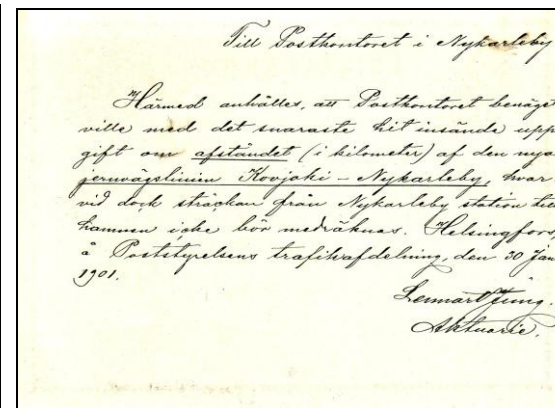 Till Postkontoret i Nykarleby
Härmed anhålles, att Postkontoret benäget
ville med det snaraste hit insända upp
gift om afståndet (i kilometer) af den nya
jernvägslinien Kovjoki - Nykarleby, hvar
vid dock sträckan från Nykarleby station till
hamnen icke bör medräknas. Helsingfors,
å Poststyrelsens trafikafdelning, den 30 Jan
1901.
Lennart Jung.
Aktuarie.